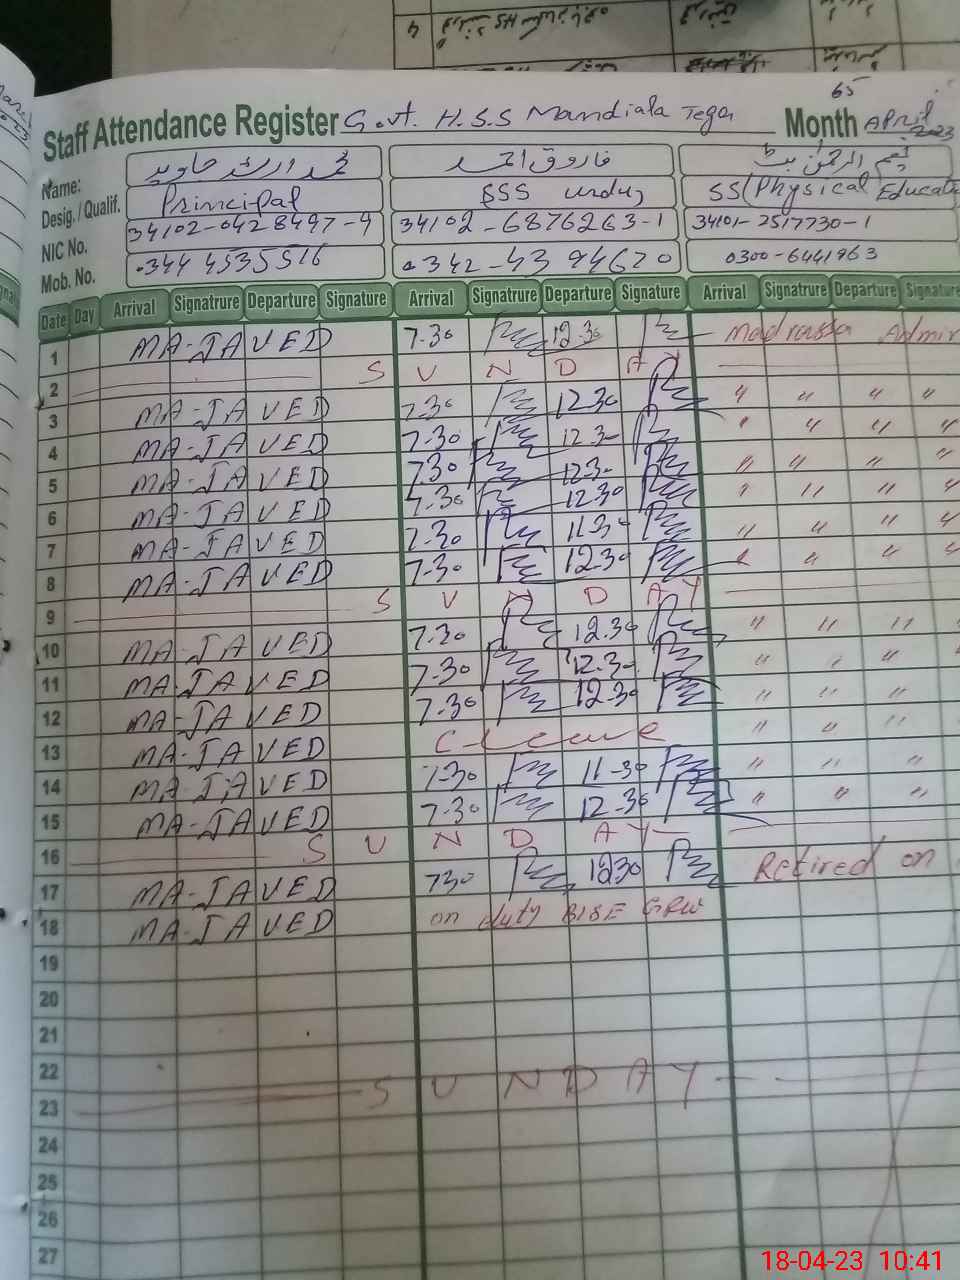 65
Staff Attendance Register Govt. H.S.S Mandiala Tega Month APRil 2023
Name: محمد ارشد جاوید فاروق احمد
Desig. / Qualif. Principal SSS urdu SS (Physical Educati
NIC No. 34102-0428497-9 34102-6876263-1 34101-2517730-1
Mob. No. 0344 4535516 0342-4394620 0300-6441963
Date Day Arrival Signatrure Departure Signature Arrival Signatrure Departure Signature Arrival Signatrure Departure Signature
1 MA-JAVED 7.30 12.30 Madrassa Admin
2 S U N D A Y
3 MA-JAVED 7.30 12.30 " " " "
4 MA-JAVED 7.30 12.30 " " " "
5 MA-JAVED 7.30 12.30 " " " "
6 MA-JAVED 7.30 12.30 " " " "
7 MA-JAVED 7.30 11.30 " " " "
8 MA-JAVED 7.30 12.30 " " " "
9 S U N D A Y
10 MA-JAVED 7.30 12.30 " " "
11 MA-JAVED 7.30 12.30 " " "
12 MA-JAVED 7.30 12.30 " " "
13 MA-JAVED C-Leave " " "
14 MA-JAVED 7.30 11-30 " " "
15 MA-JAVED 7.30 12-30 " " "
16 S U N D A Y
17 MA-JAVED 730 12.30 Retired on
18 MA-JAVED on duty BISE GRW
19
20
21
22
23 S U N D A Y
24
25
26
27
18-04-23 10:41